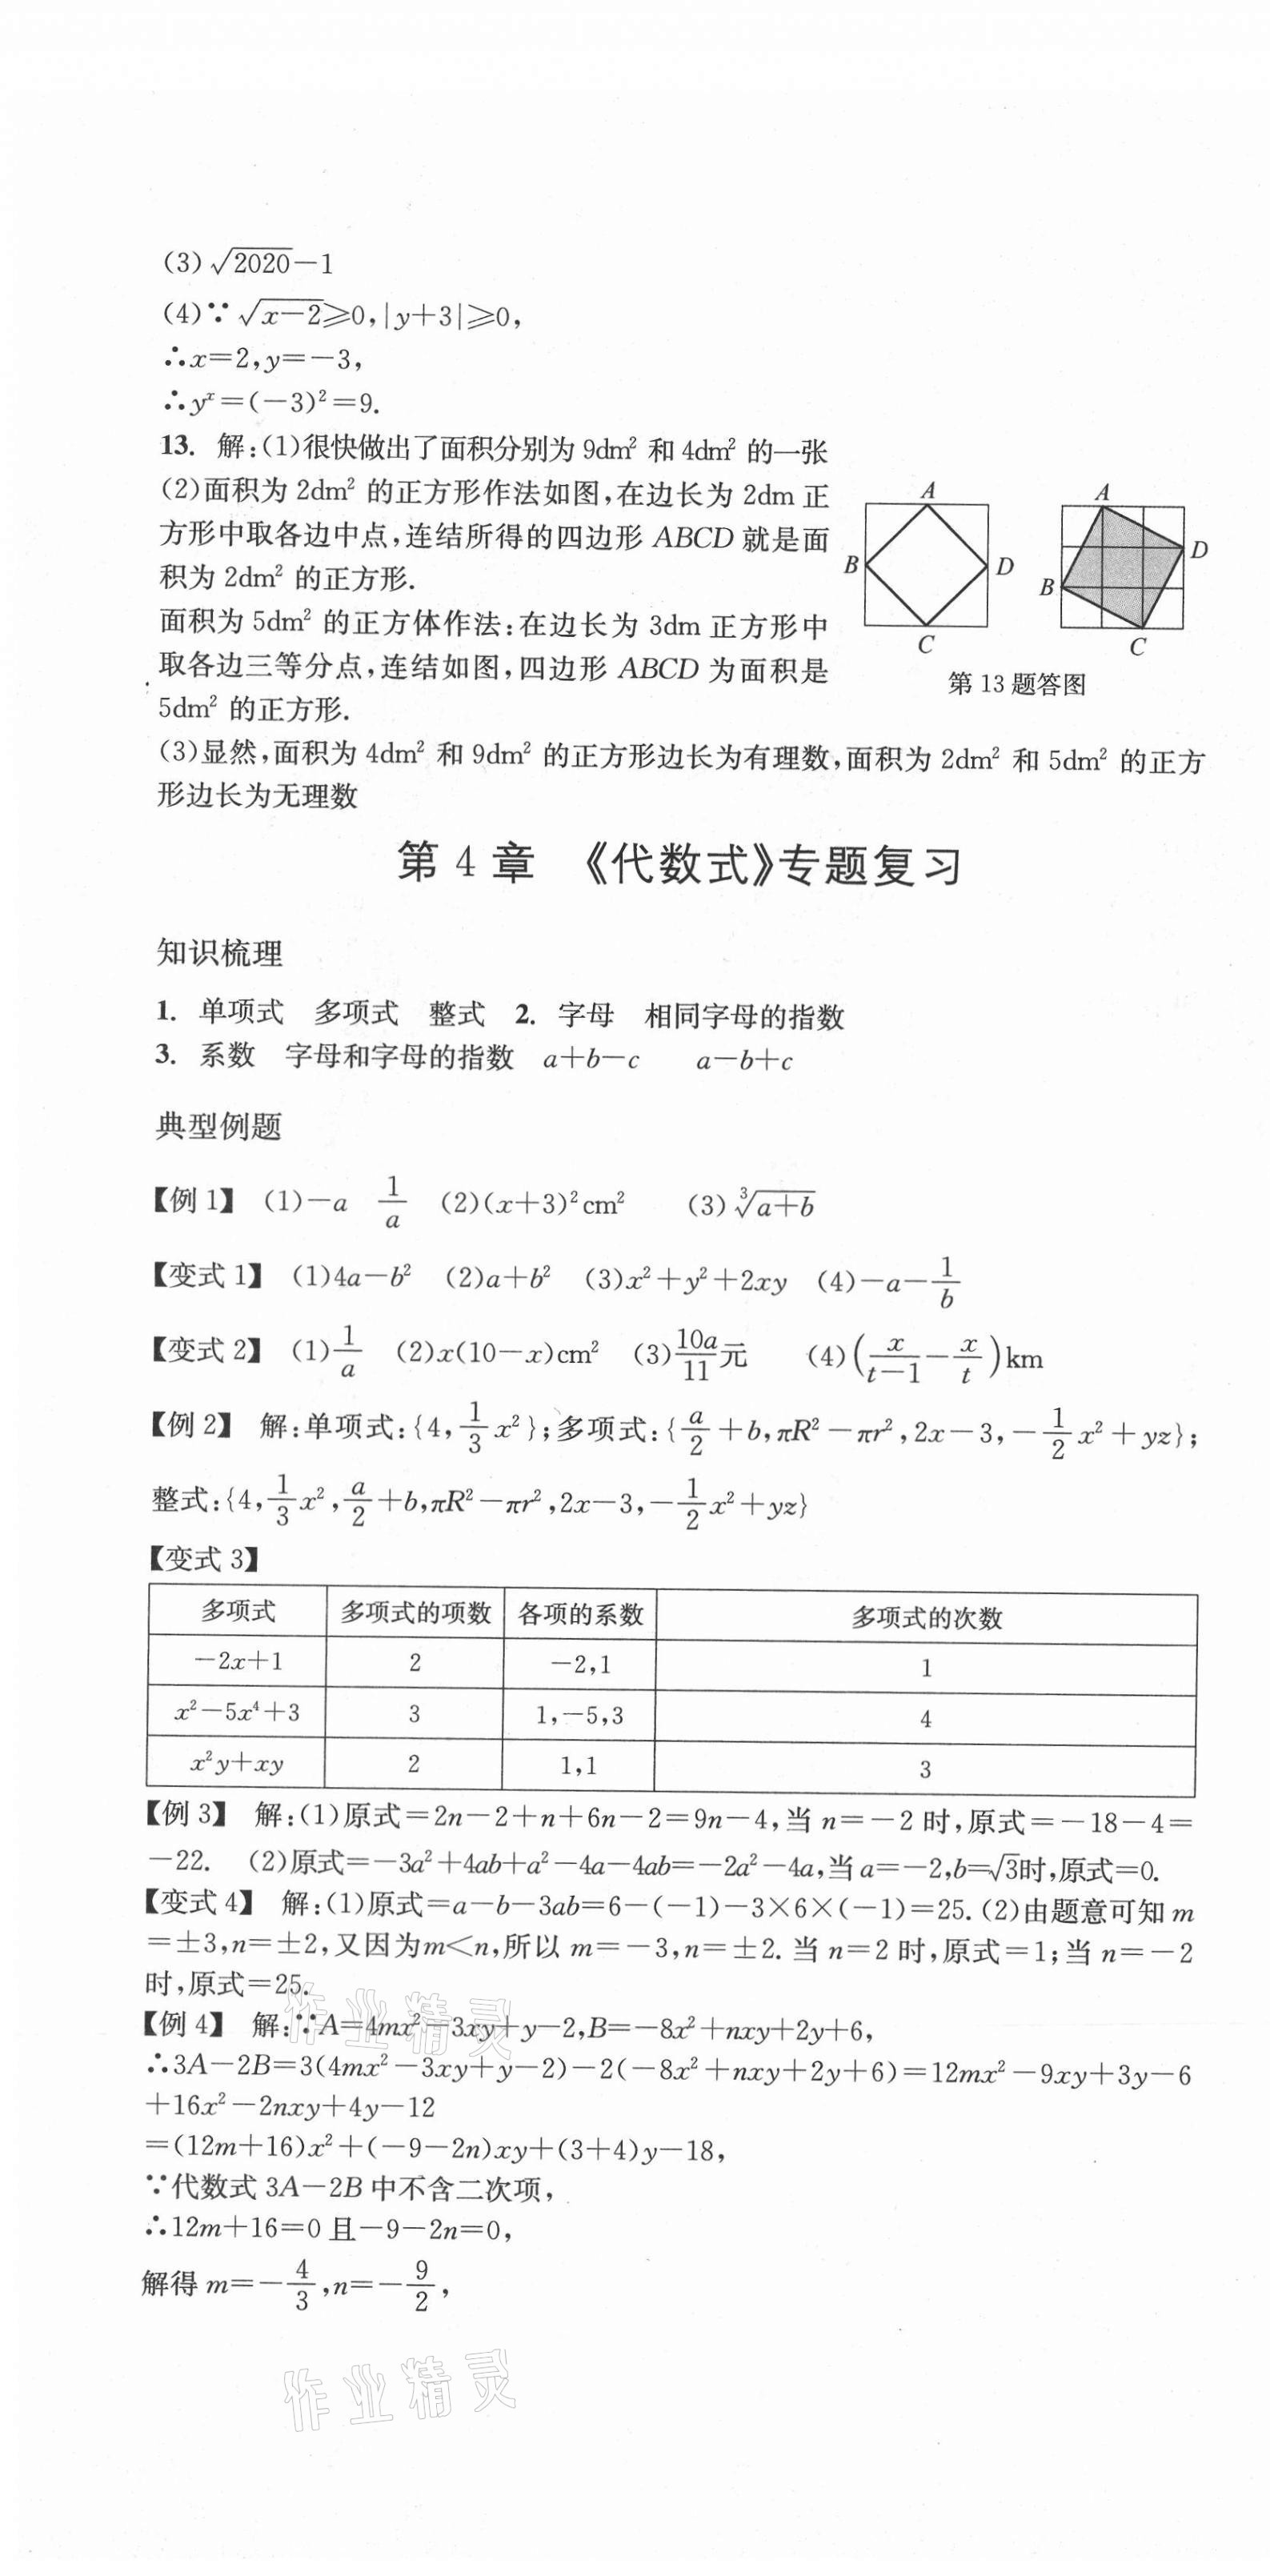 (3)√2020−1
(4)∵√x−2≥0,|y+3|≥0,
∴x=2,y=−3,
∴yˣ=(−3)²=9.
13. 解:(1)很快做出了面积分别为9dm² 和 4dm² 的一张
(2)面积为 2dm² 的正方形作法如图,在边长为 2dm 正
方形中取各边中点,连结所得的四边形 ABCD 就是面
积为 2dm² 的正方形.
面积为 5dm² 的正方体作法:在边长为 3dm 正方形中
取各边三等分点,连结如图,四边形 ABCD 为面积是
5dm² 的正方形.
A
B
D
C
A
D
B
C
第 13 题答图
(3)显然,面积为 4dm² 和 9dm² 的正方形边长为有理数,面积为 2dm² 和 5dm² 的正方
形边长为无理数
第 4 章 《代数式》专题复习
知识梳理
1. 单项式 多项式 整式 2. 字母 相同字母的指数
3. 系数 字母和字母的指数 a+b−c a−b+c
典型例题
【例 1】 (1)−a 1/a (2)(x+3)²cm² (3)∛a+b
【变式 1】 (1)4a−b² (2)a+b² (3)x²+y²+2xy (4)−a−1/b
【变式 2】 (1)1/a (2)x(10−x)cm² (3)10a/11元 (4)(x/(t−1)−x/t)km
【例 2】 解:单项式:{4,1/3x²};多项式:{a/2+b,πR²−πr²,2x−3,−1/2x²+yz};
整式:{4,1/3x²,a/2+b,πR²−πr²,2x−3,−1/2x²+yz}
【变式 3】
多项式 多项式的项数 各项的系数 多项式的次数
−2x+1 2 −2,1 1
x²−5x⁴+3 3 1,−5,3 4
x²y+xy 2 1,1 3
【例 3】 解:(1)原式=2n−2+n+6n−2=9n−4,当 n=−2 时,原式=−18−4=
−22. (2)原式=−3a²+4ab+a²−4a−4ab=−2a²−4a,当a=−2,b=√3时,原式=0.
【变式 4】 解:(1)原式=a−b−3ab=6−(−1)−3×6×(−1)=25.(2)由题意可知 m
=±3,n=±2,又因为m<n,所以 m=−3,n=±2. 当 n=2 时,原式=1;当 n=−2
时,原式=25.
【例 4】 解:∵A=4mx²−3xy+y−2,B=−8x²+nxy+2y+6,
∴3A−2B=3(4mx²−3xy+y−2)−2(−8x²+nxy+2y+6)=12mx²−9xy+3y−6
+16x²−2nxy+4y−12
=(12m+16)x²+(−9−2n)xy+(3+4)y−18,
∵代数式 3A−2B 中不含二次项,
∴12m+16=0 且−9−2n=0,
解得 m=−4/3,n=−9/2,
作业精灵
作业精灵